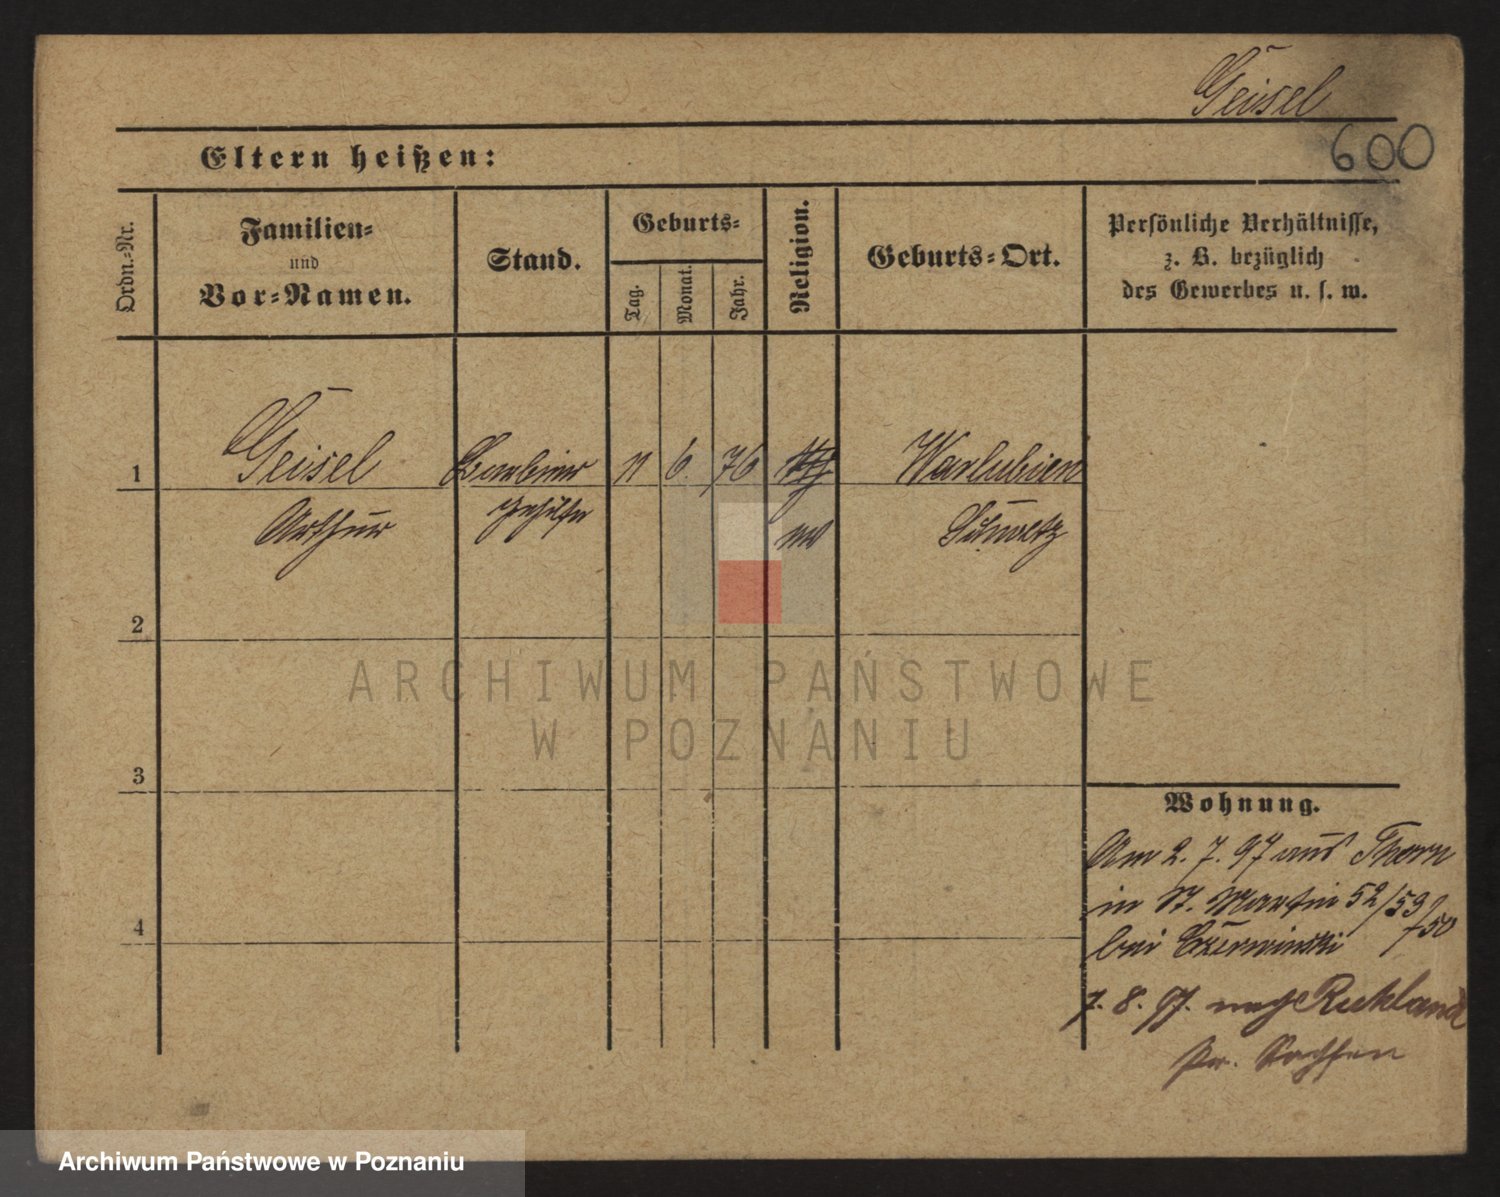 Geisel
600
Eltern heißen:
Ordn.-Nr.
Familien-
und
Vor-Namen.
Stand.
Geburts-
Tag.
Monat.
Jahr.
Religion.
Geburts-Ort.
Persönliche Verhältnisse,
z. B. bezüglich
des Gewerbes u. s. w.
1
Geisel
Arthur
Barbier
gehilfe
11
6
76
ev
Warlubien
Schwetz
2
3
4
ARCHIWUM PAŃSTWOWE
W POZNANIU
Wohnung.
Am 2. 7. 97 aus Thorn
in St. Martin 52/53/50
bei Czerwinski
7. 8. 97. nach
Pr. Sachsen
Archiwum Państwowe w Poznaniu